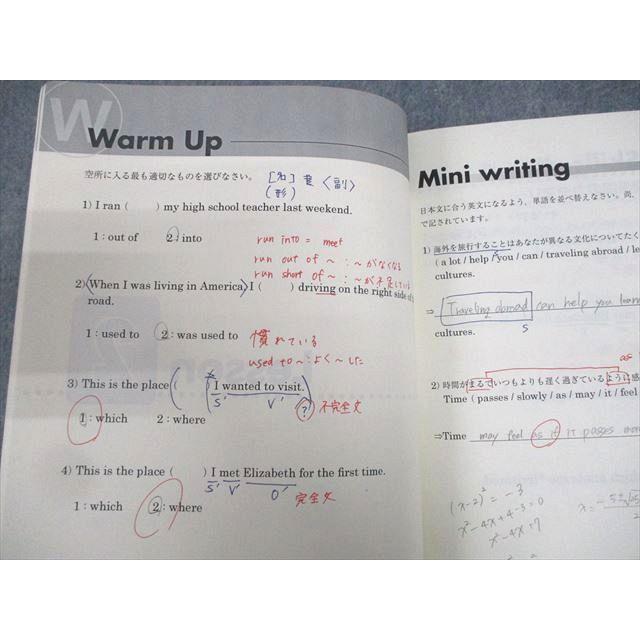 W
Warm Up
空所に入る最も適切なものを選びなさい。
[名] 動 〈副〉
(形)
1) I ran (　　) my high school teacher last weekend.
1 : out of　2 : into
run into = meet
run out of ~ : ~がなくなる
run short of ~ : ~が不足している
2) 〈When I was living in America〉 I (　　) driving on the right side of
road.
1 : used to　2 : was used to
慣れている
used to ~ : よく~した
3) This is the place (　　) I wanted to visit.
S' V' ? 不完全文
1 : which　2 : where
4) This is the place (　　) I met Elizabeth for the first time.
S' V' O' 完全文
1 : which　2 : where
Mini writing
日本文に合う英文になるよう、単語を並べ替えなさい。尚、
で記されています。
1) 海外を旅行することはあなたが異なる文化についてたく
( a lot / help / you / can / traveling abroad / le
cultures.
⇒ Traveling abroad can help you learn
S
cultures.
as
2) 時間がまるでいつもよりも遅く過ぎているように感
Time ( passes / slowly / as / may / it / feel
⇒Time may feel as if it passes more
(x-2)² = -3
x²-4x+4-3=0
x²-4x+7